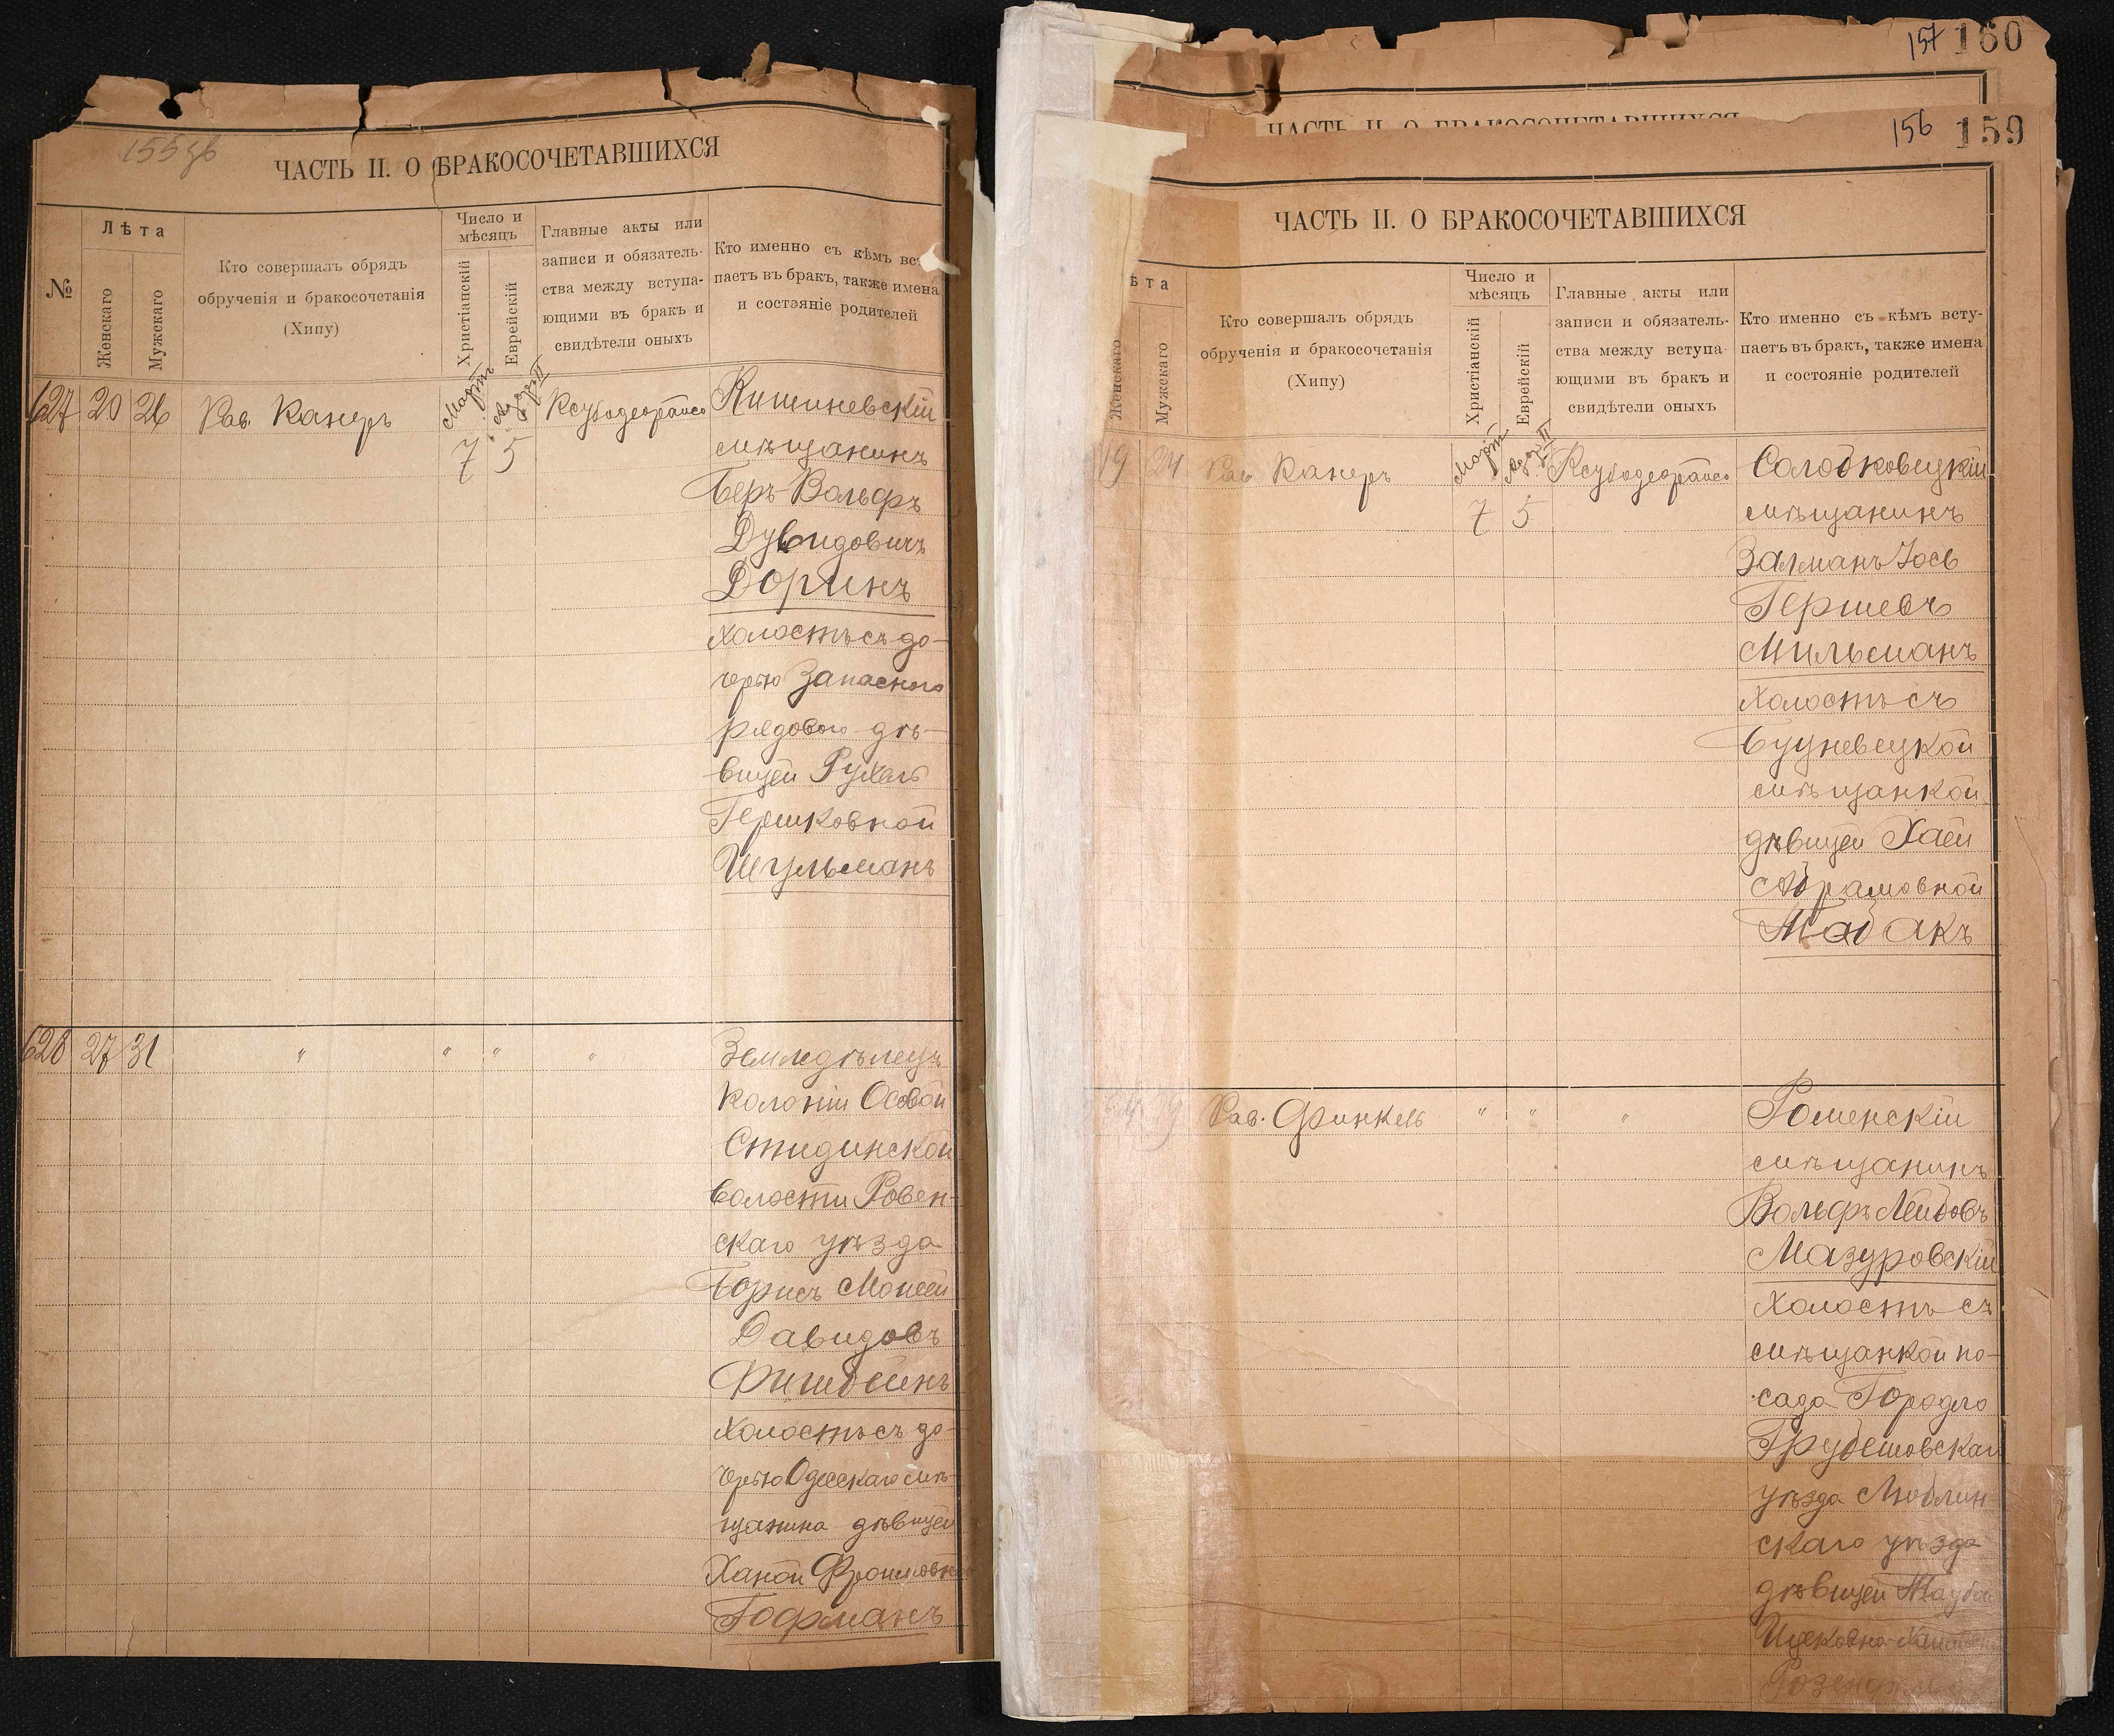 155 об
ЧАСТЬ II. О БРАКОСОЧЕТАВШИХСЯ
№
Лѣта
Женскаго
Мужскаго
Кто совершалъ обрядъ
обрученія и бракосочетанія
(Хипу)
Число и
мѣсяцъ
Христіанскій
Еврейскій
Главные акты или
записи и обязатель-
ства между вступа-
ющими въ бракъ и
свидѣтели оныхъ
Кто именно съ кѣмъ всту-
паетъ въ бракъ, также имена
и состояніе родителей
627 20 26 Рав. Канеръ
Мартъ Адаръ II
7 5
Ксубодеорайсо
Кишиневскій
мѣщанинъ
Беръ Вольфъ
Дувидовичъ
Доринъ
холостъ съ до-
черью Запаснаго
рядового дѣ-
вицей Рухлей
Гершковной
Шульманъ
628 27 31 " " " "
Земледѣлецъ
колоніи Осовой
Стидинской
волости Ровен-
скаго уѣзда
Борисъ Моисей
Давидовъ
Фишбейнъ
холостъ съ до-
черью Одесскаго мѣ-
щанина дѣвицей
Ханой Фроимовной
Гофманъ
157 160
ЧАСТЬ II. О БРАКОСОЧЕТАВШИХСЯ
156 159
ЧАСТЬ II. О БРАКОСОЧЕТАВШИХСЯ
ѣта
Женскаго
Мужскаго
Кто совершалъ обрядъ
обрученія и бракосочетанія
(Хипу)
Число и
мѣсяцъ
Христіанскій
Еврейскій
Главные акты или
записи и обязатель-
ства между вступа-
ющими въ бракъ и
свидѣтели оныхъ
Кто именно съ кѣмъ всту-
паетъ въ бракъ, также имена
и состояніе родителей
19 24 Рав Канеръ
Мартъ Адаръ II
7 5
Ксубодеорайсо
Солобковецкій
мѣщанинъ
Залманъ Іось
Гершевъ
Мильманъ
холостъ съ
Буцневецкой
мѣщанкой
дѣвицей Хаей
Абрамовной
Табакъ
Рав. Финкель " " "
Роменскій
мѣщанинъ
Вольфъ Лейбовъ
Мазуровскій
холостъ съ
мѣщанкой по-
сада Городло
Грубешовскаго
уѣзда Люблин
скаго уѣзда
дѣвицей Тауба
Ицековна